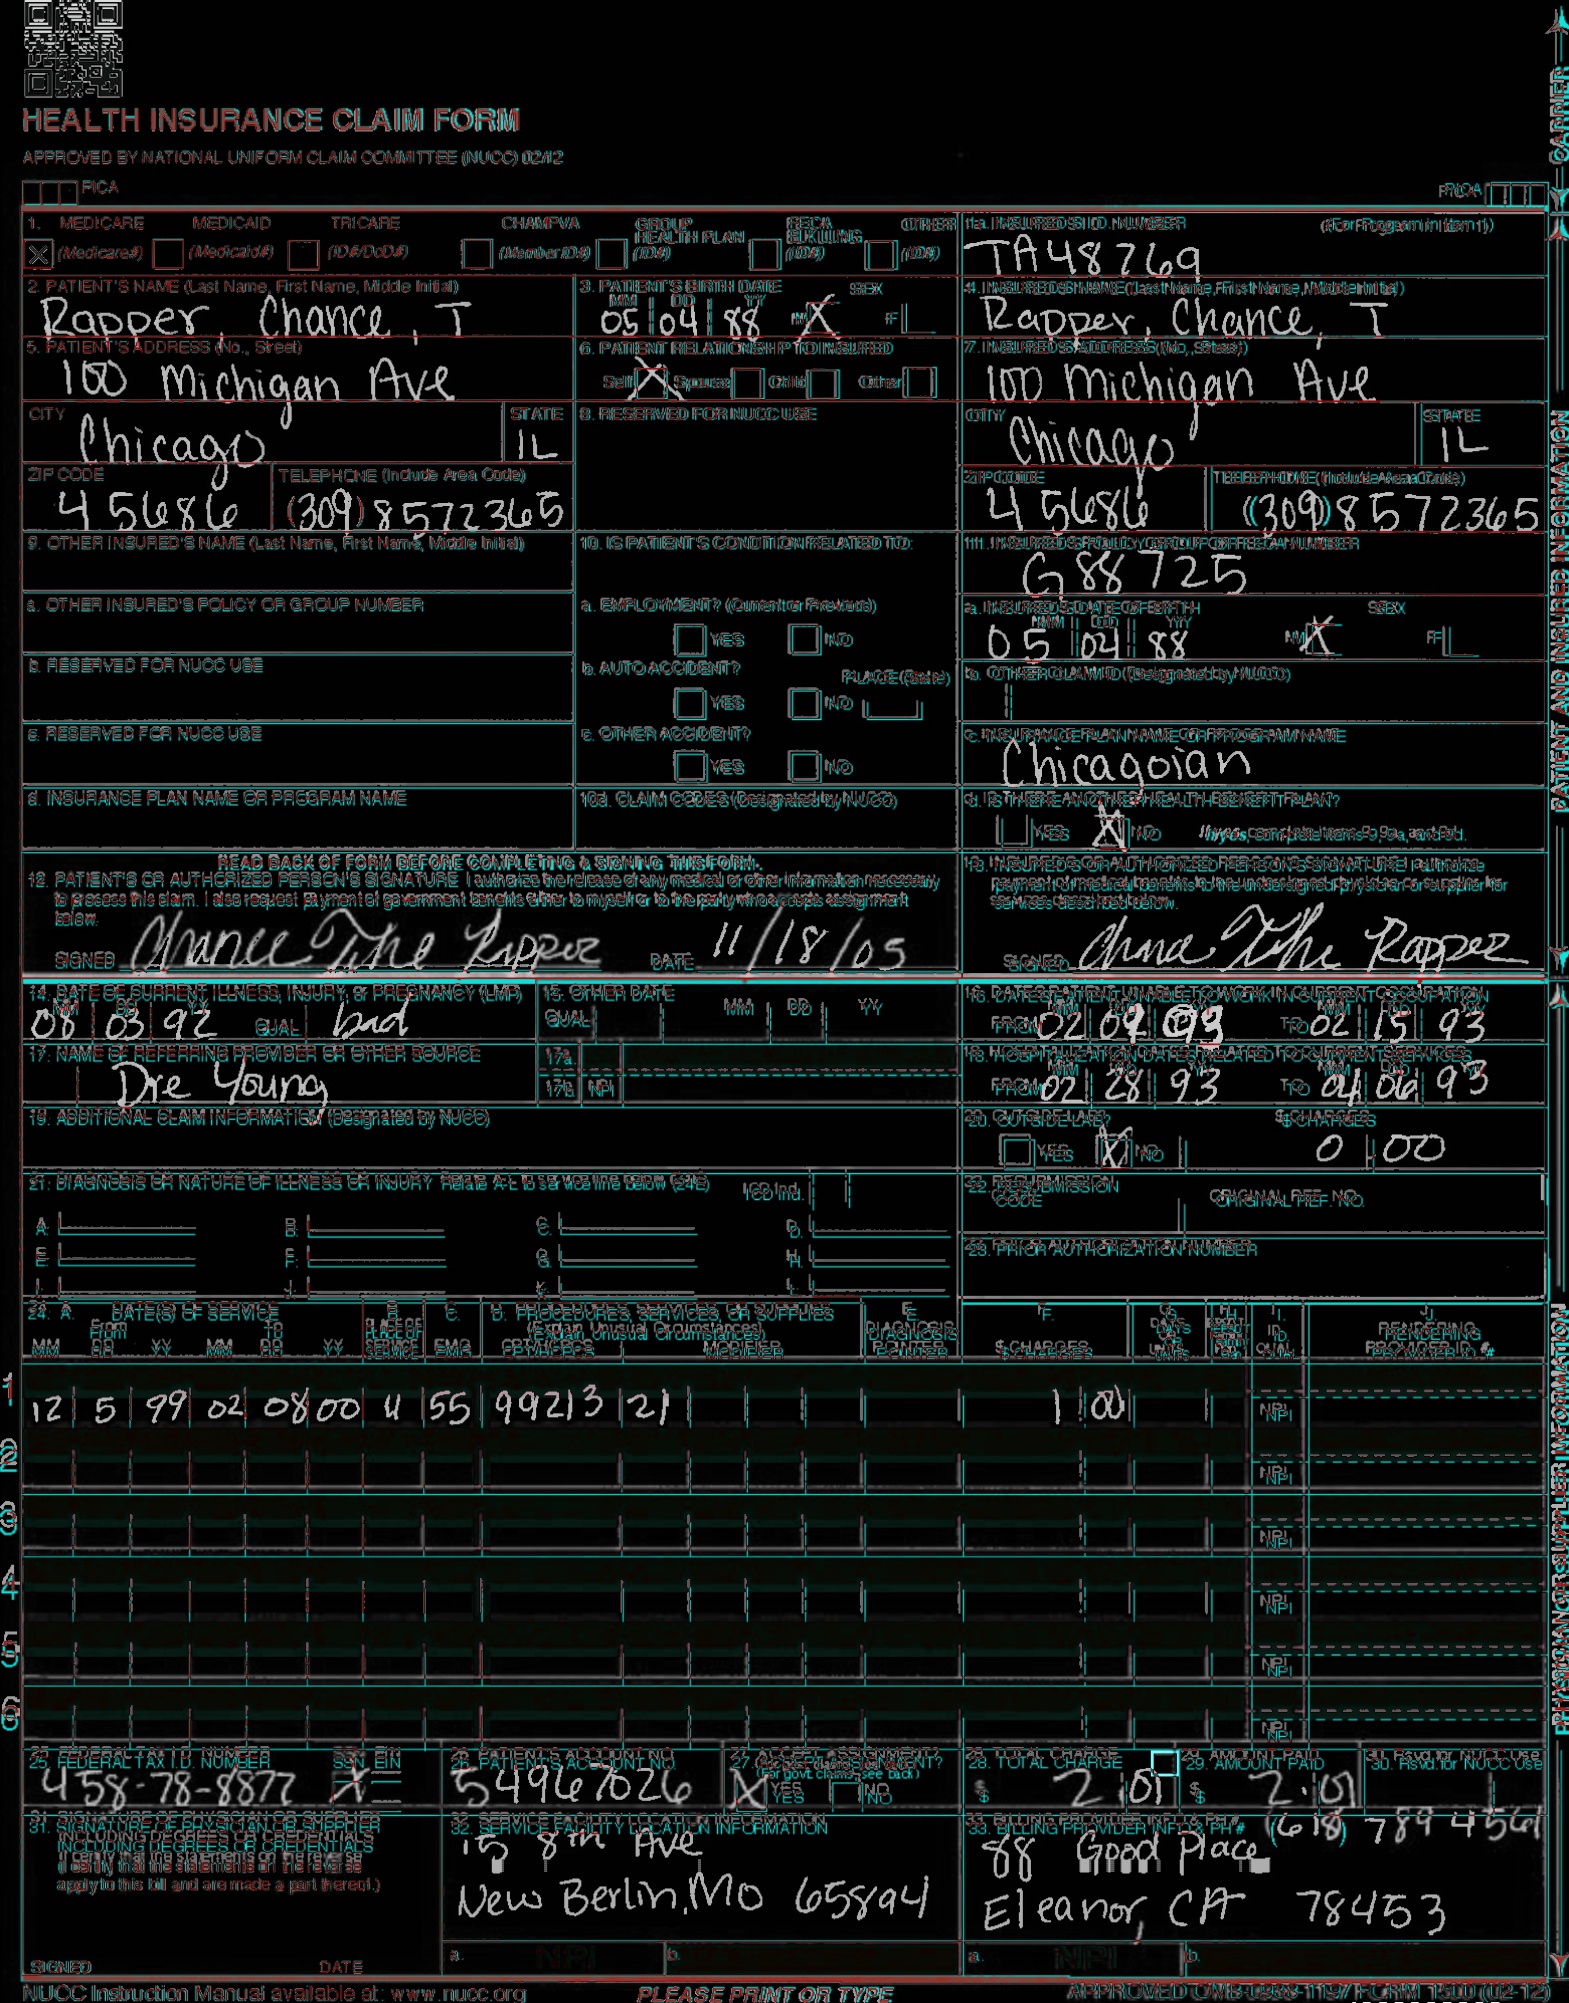 HEALTH INSURANCE CLAIM FORM
APPROVED BY NATIONAL UNIFORM CLAIM COMMITTEE (NUCC) 02/12
PICA
PICA
CARRIER
1. MEDICARE MEDICAID TRICARE CHAMPVA GROUP HEALTH PLAN FECA BLK LUNG OTHER
(Medicare#) (Medicaid#) (ID#/DoD#) (Member ID#) (ID#) (ID#) (ID#)
1a. INSURED'S I.D. NUMBER (For Program in Item 1)
TA48769
2. PATIENT'S NAME (Last Name, First Name, Middle Initial)
Rapper, Chance, T
3. PATIENT'S BIRTH DATE SEX
MM DD YY
05 04 88 M X F
4. INSURED'S NAME (Last Name, First Name, Middle Initial)
Rapper, Chance, T
5. PATIENT'S ADDRESS (No., Street)
100 Michigan Ave
6. PATIENT RELATIONSHIP TO INSURED
Self X Spouse Child Other
7. INSURED'S ADDRESS (No., Street)
100 Michigan Ave
CITY STATE
Chicago IL
8. RESERVED FOR NUCC USE
CITY STATE
Chicago IL
ZIP CODE TELEPHONE (Include Area Code)
45686 (309) 8572365
ZIP CODE TELEPHONE (Include Area Code)
45686 (309) 8572365
9. OTHER INSURED'S NAME (Last Name, First Name, Middle Initial)
10. IS PATIENT'S CONDITION RELATED TO:
11. INSURED'S POLICY GROUP OR FECA NUMBER
G88725
a. OTHER INSURED'S POLICY OR GROUP NUMBER
a. EMPLOYMENT? (Current or Previous)
YES NO
a. INSURED'S DATE OF BIRTH SEX
MM DD YY
05 04 88 M X F
b. RESERVED FOR NUCC USE
b. AUTO ACCIDENT? PLACE (State)
YES NO
b. OTHER CLAIM ID (Designated by NUCC)
c. RESERVED FOR NUCC USE
c. OTHER ACCIDENT?
YES NO
c. INSURANCE PLAN NAME OR PROGRAM NAME
Chicagoian
d. INSURANCE PLAN NAME OR PROGRAM NAME
10d. CLAIM CODES (Designated by NUCC)
d. IS THERE ANOTHER HEALTH BENEFIT PLAN?
YES X NO If yes, complete items 9, 9a, and 9d.
READ BACK OF FORM BEFORE COMPLETING & SIGNING THIS FORM.
12. PATIENT'S OR AUTHORIZED PERSON'S SIGNATURE I authorize the release of any medical or other information necessary
to process this claim. I also request payment of government benefits either to myself or to the party who accepts assignment
below.
SIGNED Chance The Rapper DATE 11/18/05
13. INSURED'S OR AUTHORIZED PERSON'S SIGNATURE I authorize
payment of medical benefits to the undersigned physician or supplier for
services described below.
SIGNED Chance The Rapper
PATIENT AND INSURED INFORMATION
14. DATE OF CURRENT ILLNESS, INJURY, or PREGNANCY (LMP)
MM DD YY
08 03 92 QUAL. bad
15. OTHER DATE
QUAL. MM DD YY
16. DATES PATIENT UNABLE TO WORK IN CURRENT OCCUPATION
FROM 02 09 93 TO 02 15 93
17. NAME OF REFERRING PROVIDER OR OTHER SOURCE
Dre Young
17a.
17b. NPI
18. HOSPITALIZATION DATES RELATED TO CURRENT SERVICES
MM DD YY MM DD YY
FROM 02 28 93 TO 04 06 93
19. ADDITIONAL CLAIM INFORMATION (Designated by NUCC)
20. OUTSIDE LAB? $ CHARGES
YES X NO 0 00
21. DIAGNOSIS OR NATURE OF ILLNESS OR INJURY Relate A-L to service line below (24E) ICD Ind.
A. B. C. D.
E. F. G. H.
I. J. K. L.
22. RESUBMISSION CODE ORIGINAL REF. NO.
23. PRIOR AUTHORIZATION NUMBER
24. A. DATE(S) OF SERVICE B. PLACE OF SERVICE C. EMG D. PROCEDURES, SERVICES, OR SUPPLIES E. DIAGNOSIS POINTER F. $ CHARGES G. DAYS OR UNITS H. I. ID. QUAL. J. RENDERING PROVIDER ID. #
From To (Explain Unusual Circumstances)
MM DD YY MM DD YY CPT/HCPCS MODIFIER
1 12 5 99 02 08 00 4 55 99213 21 1 00 NPI
2 NPI
3 NPI
4 NPI
5 NPI
6 NPI
25. FEDERAL TAX I.D. NUMBER SSN EIN
458-78-8877 X
26. PATIENT'S ACCOUNT NO.
54967026
27. ACCEPT ASSIGNMENT?
(For govt. claims, see back)
X YES NO
28. TOTAL CHARGE
$ 2 01
29. AMOUNT PAID
$ 2 01
30. Rsvd. for NUCC Use
31. SIGNATURE OF PHYSICIAN OR SUPPLIER
INCLUDING DEGREES OR CREDENTIALS
(I certify that the statements on the reverse
apply to this bill and are made a part thereof.)
SIGNED DATE
32. SERVICE FACILITY LOCATION INFORMATION
15 8th Ave
New Berlin, MO 65894
a. NPI b.
33. BILLING PROVIDER INFO & PH # (618) 789 4561
88 Good Place
Eleanor, CA 78453
a. NPI b.
PHYSICIAN OR SUPPLIER INFORMATION
NUCC Instruction Manual available at: www.nucc.org
PLEASE PRINT OR TYPE
APPROVED OMB-0938-1197 FORM 1500 (02-12)